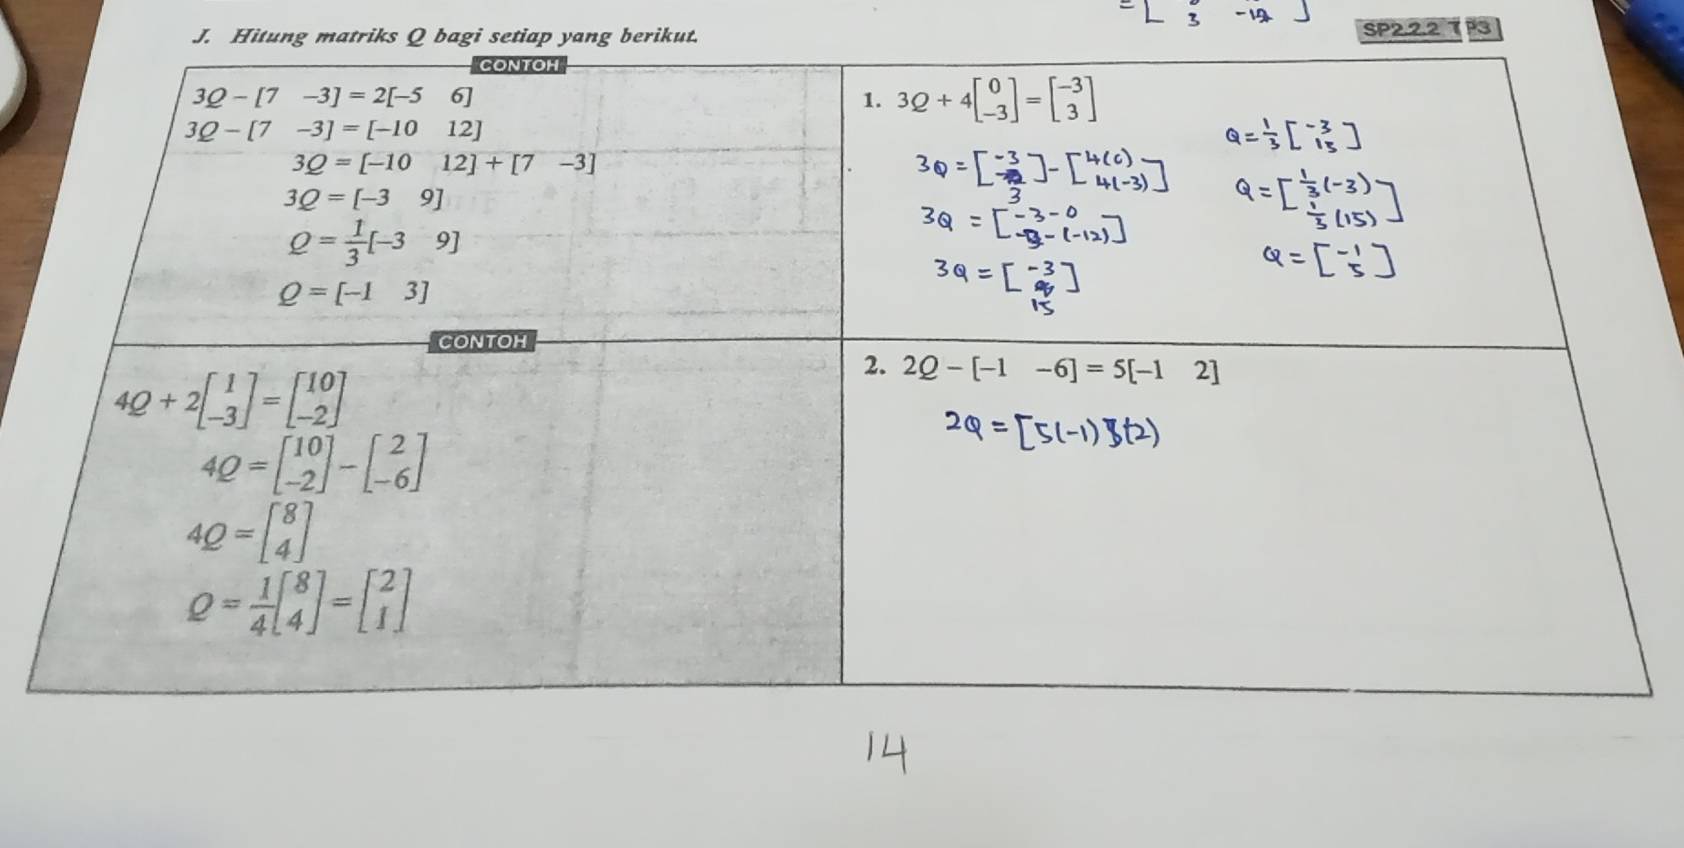 = [ 3 -12 ]
J. Hitung matriks Q bagi setiap yang berikut.
SP2.2.2 TP3
CONTOH
3Q – [7 –3] = 2[–5 6]
3Q – [7 –3] = [–10 12]
3Q = [–10 12] + [7 –3]
3Q = [–3 9]
Q = 1/3 [–3 9]
Q = [–1 3]
1. 3Q + 4[0; –3] = [–3; 3]
3Q = [-3; 3] - [4(0); 4(-3)]
3Q = [-3-0; 3-(-12)]
3Q = [-3; 15]
Q = 1/3 [-3; 15]
Q = [1/3(-3); 1/3(15)]
Q = [-1; 5]
CONTOH
4Q + 2[1; –3] = [10; –2]
4Q = [10; –2] – [2; –6]
4Q = [8; 4]
Q = 1/4 [8; 4] = [2; 1]
2. 2Q – [–1 –6] = 5[–1 2]
2Q = [5(-1) 5(2)
14